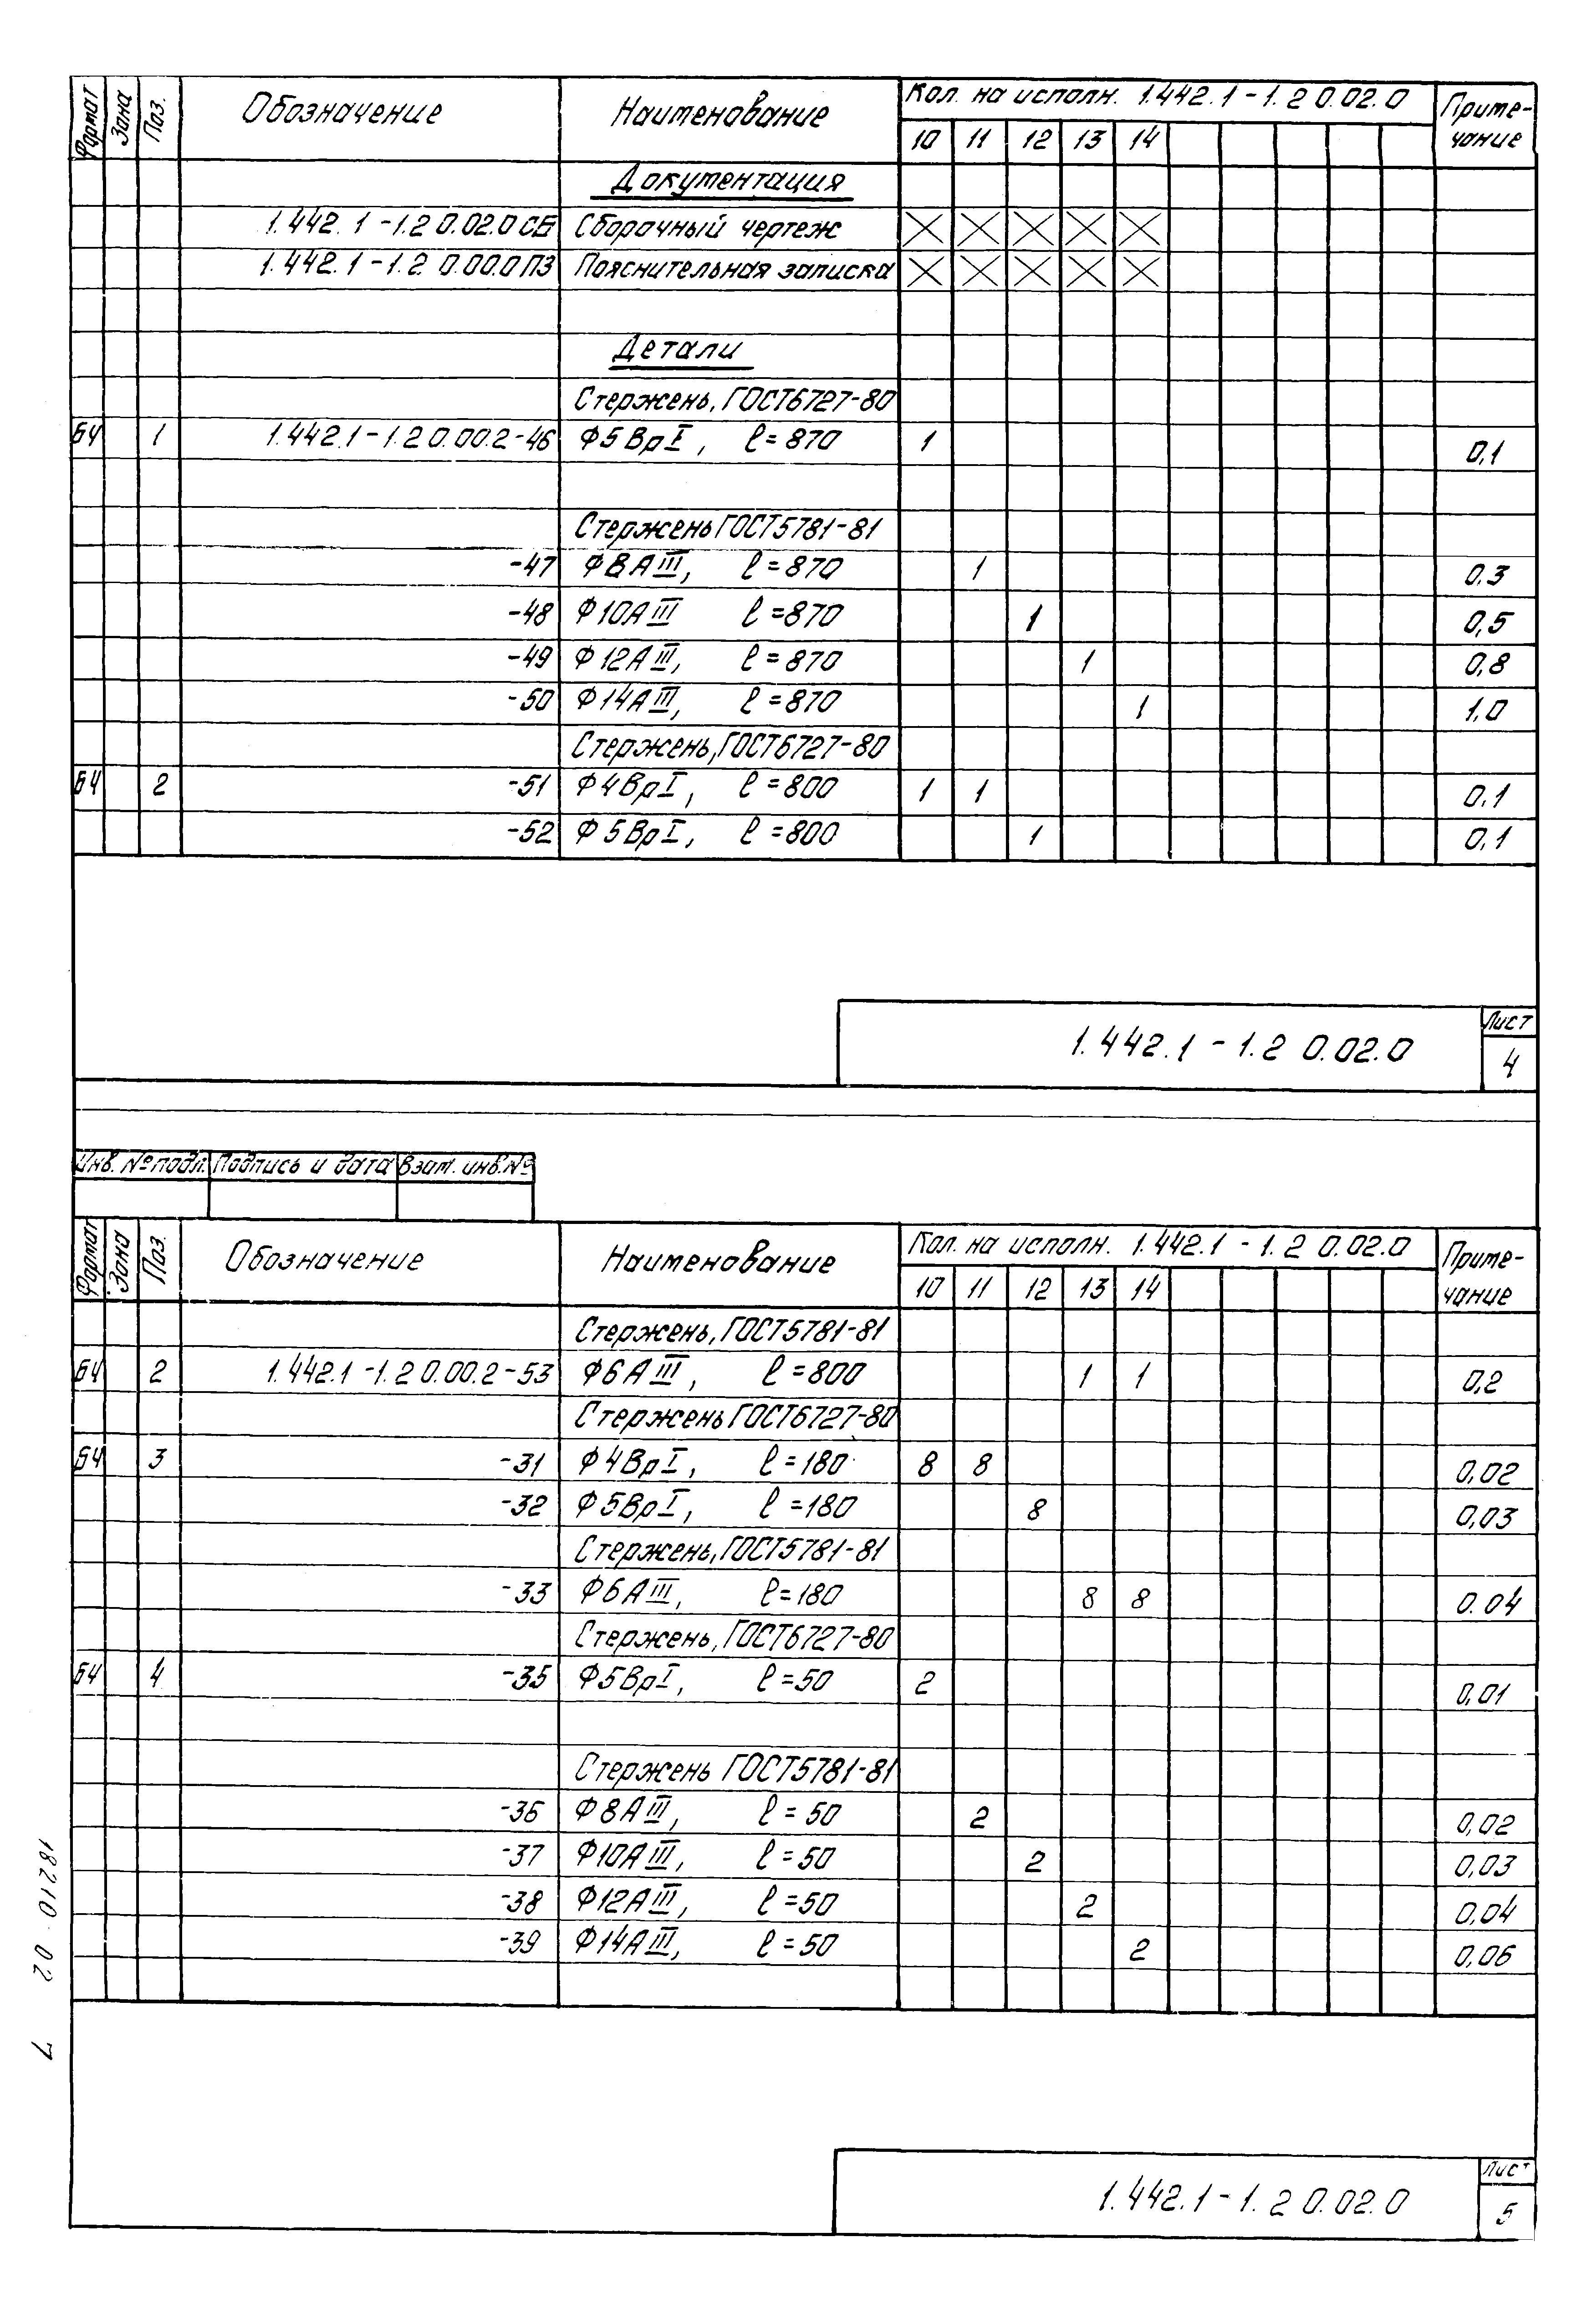 Формат Зона Поз. Обозначение Наименование Кол. на исполн. 1.442.1-1.2 0.02.0 Приме-чание
10 11 12 13 14
Документация
1.442.1-1.2 0.02.0 СБ Сборочный чертеж
1.442.1-1.2 0.00.0 ПЗ Пояснительная записка
Детали
Стержень, ГОСТ6727-80
БЧ 1 1.442.1-1.2 0.00.2-46 Ф5ВрI, l=870 1 0,1
Стержень ГОСТ5781-81
-47 Ф8АIII, l=870 1 0.3
-48 Ф10АIII l=870 1 0,5
-49 Ф12АIII, l=870 1 0,8
-50 Ф14АIII, l=870 1 1.0
Стержень, ГОСТ6727-80
БЧ 2 -51 Ф4ВрI, l=800 1 1 0.1
-52 Ф5ВрI, l=800 1 0,1
1.442.1-1.2 0.02.0
Лист
4
Инв. № подл. Подпись и дата Взам. инв. №
Формат Зона Поз. Обозначение Наименование Кол. на исполн. 1.442.1-1.2 0.02.0 Приме-чание
10 11 12 13 14
Стержень, ГОСТ5781-81
БЧ 2 1.442.1-1.2 0.00.2-53 Ф6АIII, l=800 1 1 0,2
Стержень ГОСТ6727-80
БЧ 3 -31 Ф4ВрI, l=180 8 8 0,02
-32 Ф5ВрI, l=180 8 0,03
Стержень, ГОСТ5781-81
-33 Ф6АIII, l=180 8 8 0.04
Стержень, ГОСТ6727-80
БЧ 4 -35 Ф5ВрI, l=50 2 0,01
Стержень ГОСТ5781-81
-36 Ф8АIII, l=50 2 0,02
-37 Ф10АIII, l=50 2 0,03
-38 Ф12АIII, l=50 2 0,04
-39 Ф14АIII, l=50 2 0,06
18210 02 7
1.442.1-1.2 0.02.0
Лист
5